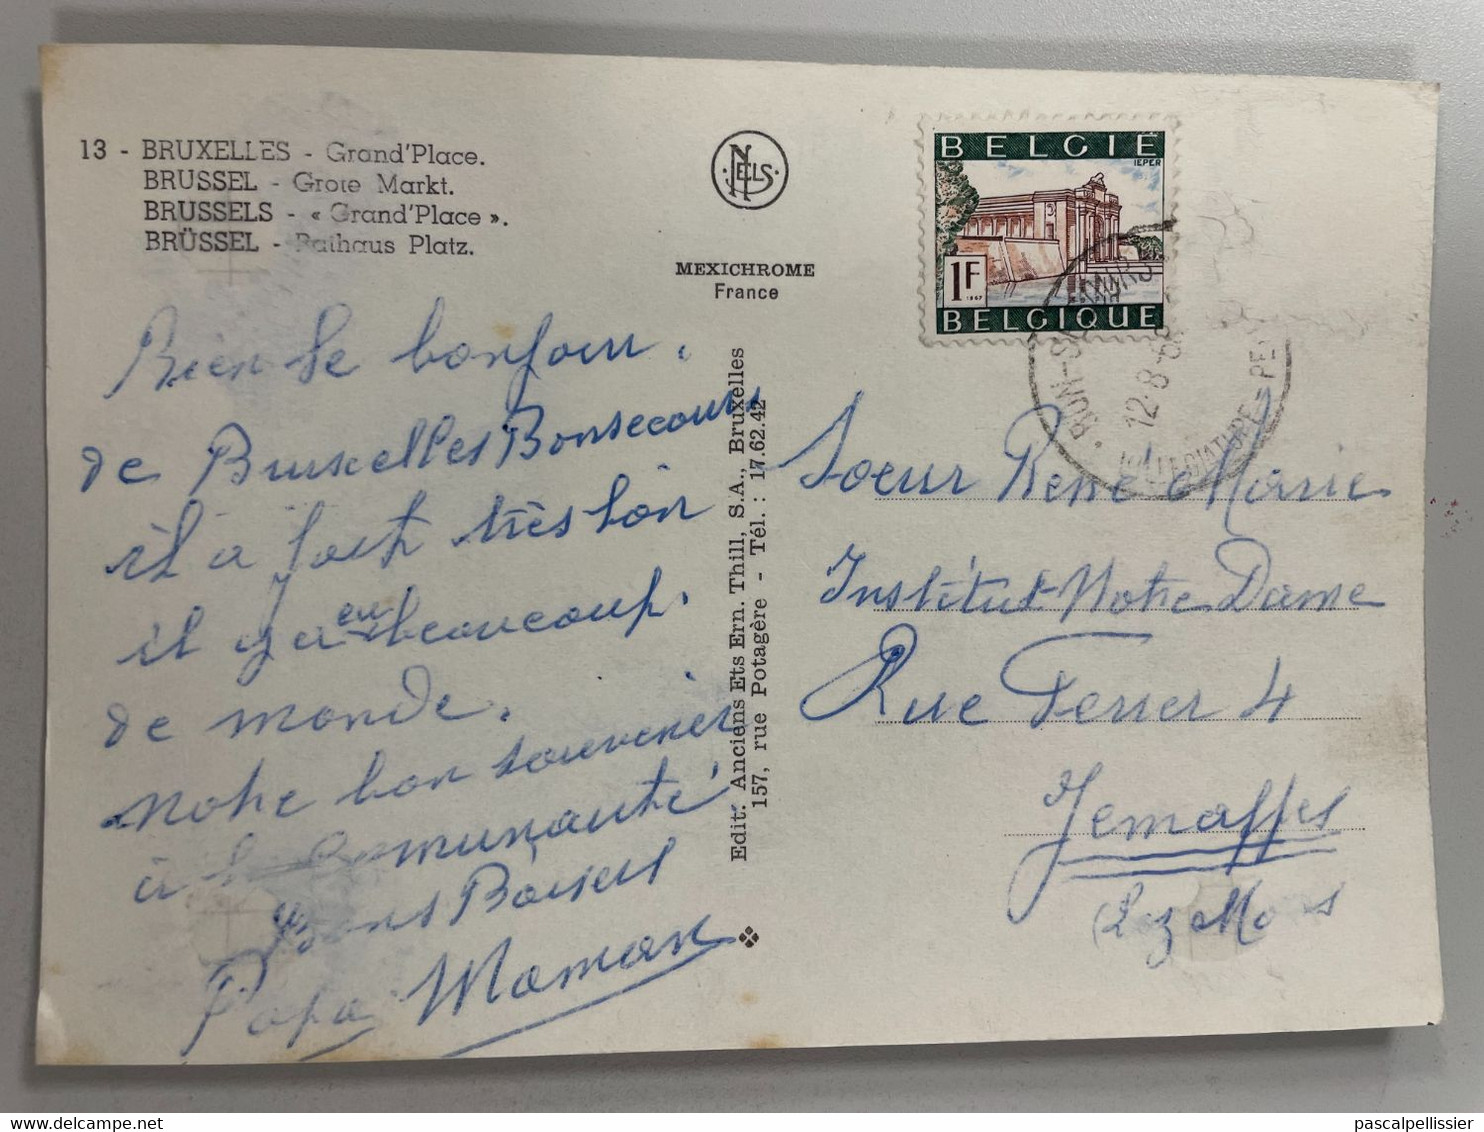 13 - BRUXELLES - Grand'Place.
BRUSSEL - Grote Markt.
BRUSSELS - « Grand'Place ».
BRÜSSEL - Rathaus Platz.
NELS
MEXICHROME
France
BELGIË
IEPER
1F
1967
BELGIQUE
12-8-68
VILLEGIATURE
Bien le bonjour.
de Bruxelles Bonsecours
il a fait très bon
il y a eu beaucoup.
de monde.
Notre bon souvenir
à la Communauté
Bons Baisers
Papa Maman
Edit. Anciens Ets Ern. Thill, S.A., Bruxelles
157, rue Potagère - Tél. : 17.62.42
Soeur René Marie
Institut Notre Dame
Rue Ferrer 4
Jemappes
(Lez Mons
pascalpellissier
www.delcampe.net